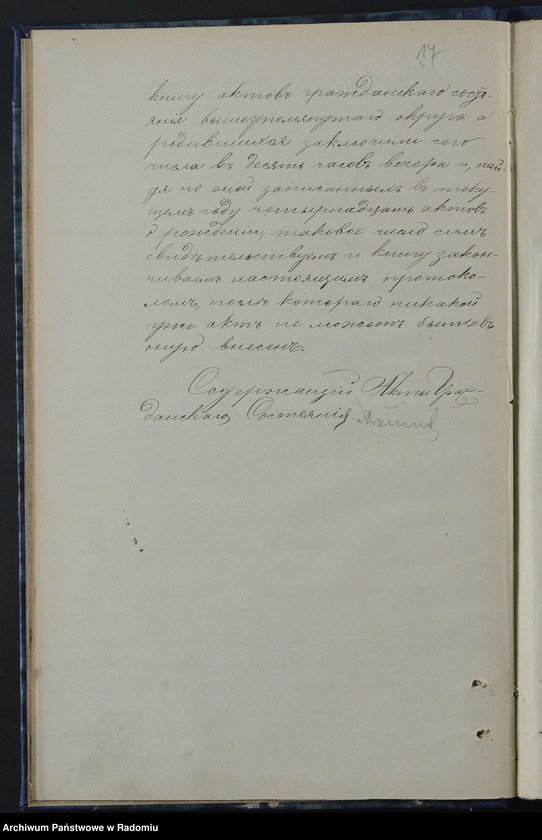 17
книгу актовъ гражданскаго состо-
янія вышеупомянутаго округа о
родившихся заключили сего
числа въ десять часовъ вечера и, най-
дя по оной записанныхъ въ теку-
щемъ году четырнадцать актовъ
о рожденіи, таковое число симъ
свидѣтельствуемъ и книгу закон-
чиваемъ настоящимъ протоко-
ломъ, послѣ котораго никакой
уже актъ не можетъ быть въ
оную внесенъ.
Содержащій Акты Граж-
данскаго Состоянія
Archiwum Państwowe w Radomiu